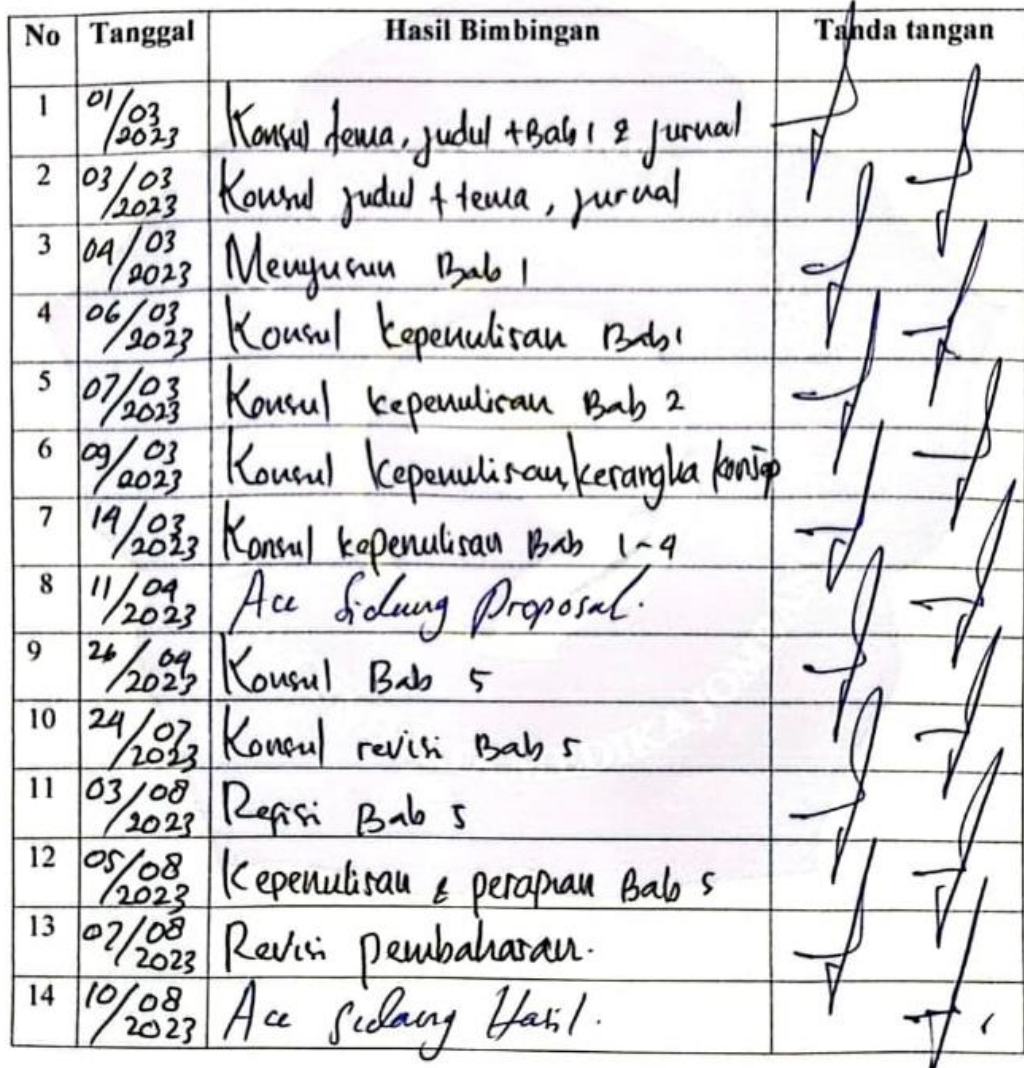 No Tanggal Hasil Bimbingan Tanda tangan
1 01/03 2023 Konsul tema, judul + Bab 1 & jurnal
2 03/03 2023 Konsul judul + tema, jurnal
3 04/03 2023 Menyusun Bab 1
4 06/03 2023 Konsul kepenulisan Bab 1
5 07/03 2023 Konsul kepenulisan Bab 2
6 09/03 2023 Konsul kepenulisan, kerangka konsep
7 14/03 2023 Konsul kepenulisan Bab 1-4
8 11/04 2023 Acc Sidang Proposal.
9 26/04 2023 Konsul Bab 5
10 24/07 2023 Konsul revisi Bab 5
11 03/08 2023 Refisi Bab 5
12 05/08 2023 Kepenulisan & perapian Bab 5
13 07/08 2023 Revisi pembahasan.
14 10/08 2023 Acc Sidang Hasil.